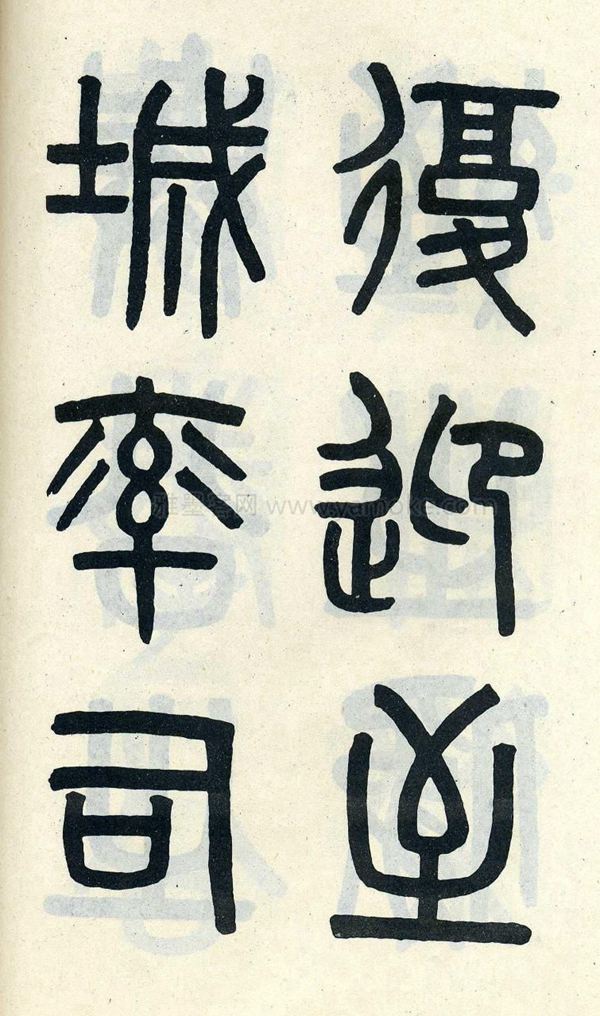 復迎至
城率司
雅墨客网 www.yamoke.com